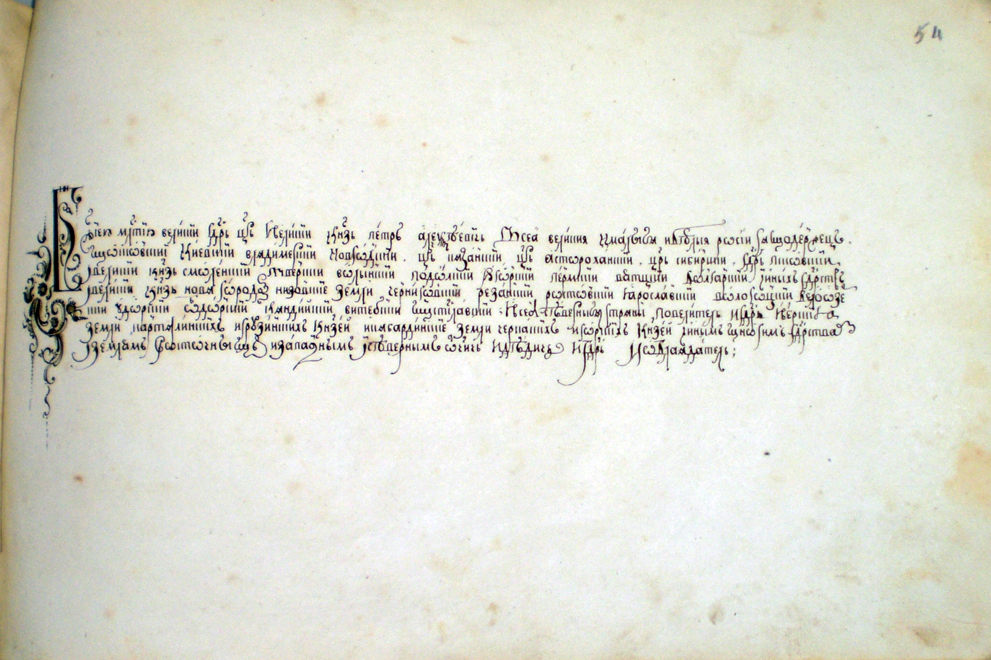 54
Бжиею млстию великии гдрь црь И великии Кнзь петръ алеѯѣевичь Всеа великия И малыя И бѣлыя росиі самодержецъ.
московскиі Киевскиі владимерскиі Новгородцкиі. црь казанскиі. црь астороханскиі. црь сибирскиі. гдрь псковскиі.
І великиі кнзь смоленскиі тверскиі югорскиі пермскиі вятцкиі болгарскиі И иных гдрствъ
І великиі кнзь нова города низовские земли черниговскиі резанскиі ростовскиі Ярославскиі белоозерскиі
удорскиі обдорскиі Кондинскиі, витебскиі мстиславскиі И всеа сѣверныя страны повелитель И гдрь Иверские
земли карталинских И грузинских Кнзеи И кабардинские земли черкаских И горских Кнзеи И иным многим гдрствам
И землям восточным И западным И сѣверным отчичь И дѣдичь И гдрь И обладатель;